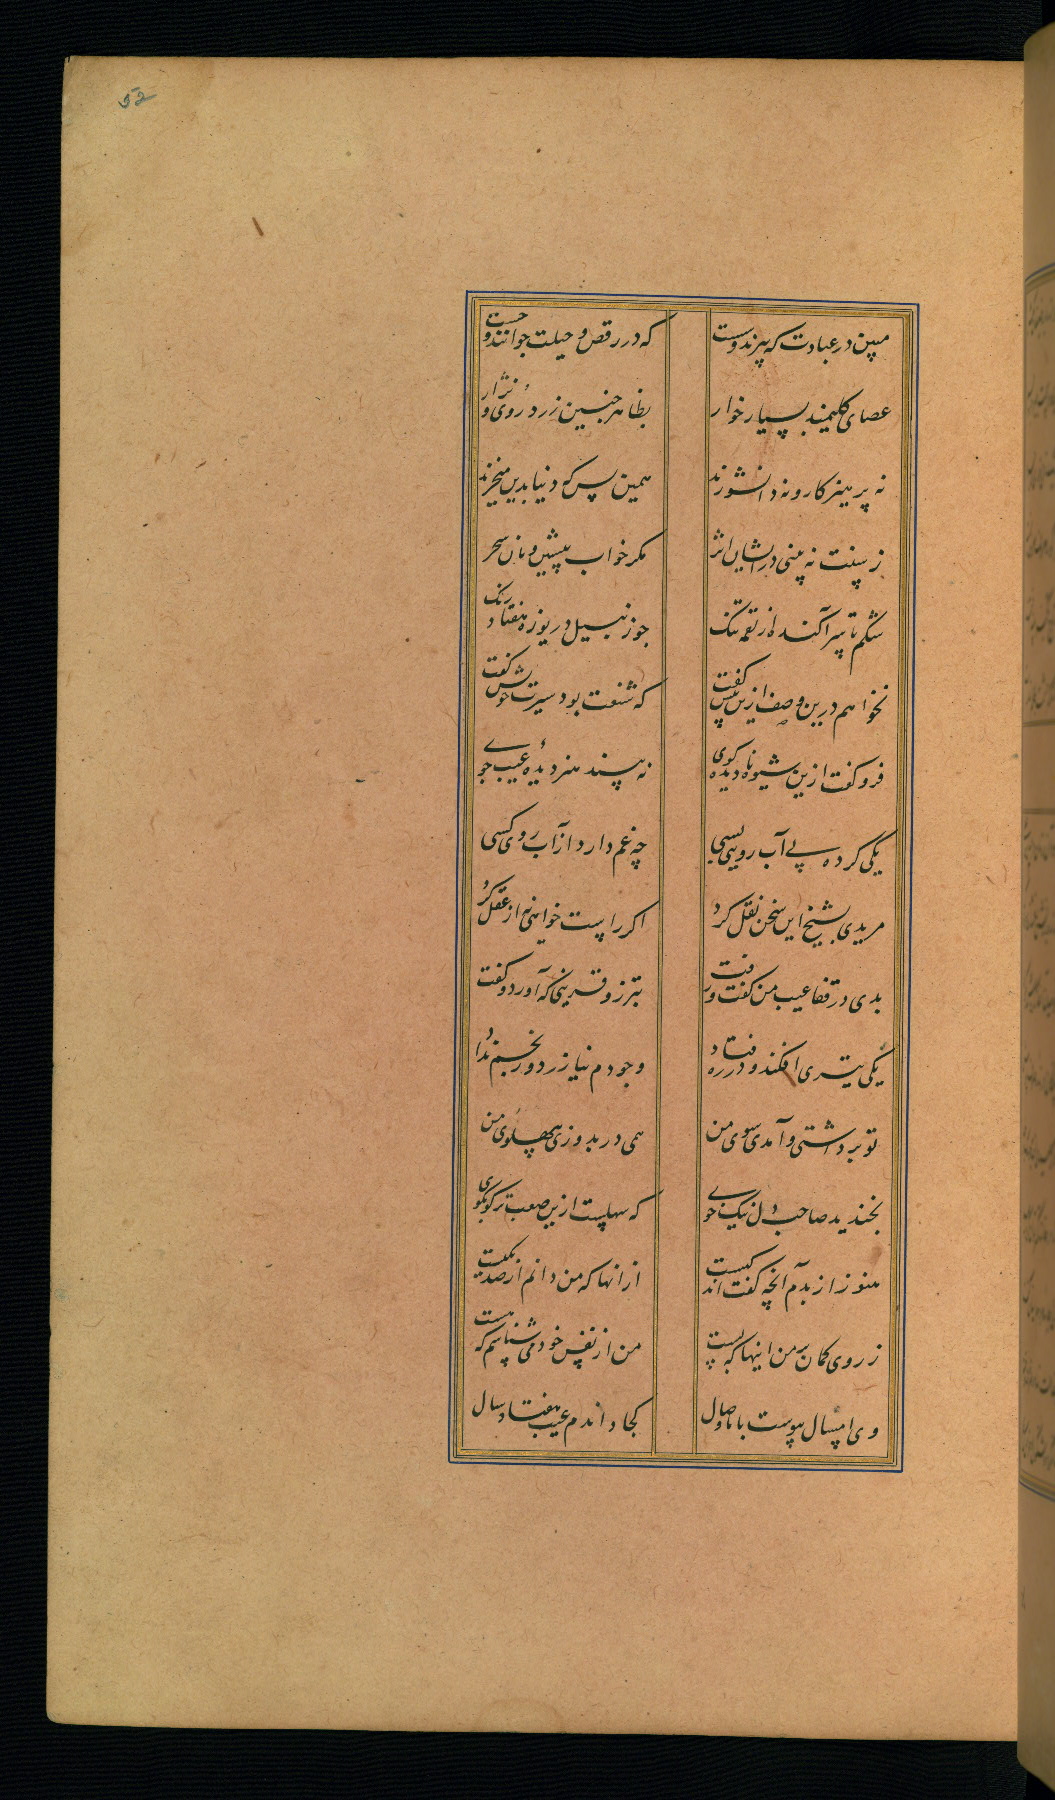 52
مبین در عبادت که پیرند و سست که در رقص و حیلت جوانند و چست
عصای کلیمند بسیار خوار بظاهر چنین زرد روی و نزار
نه پرهیزکار و نه دانشورند همین بس که دنیا بدین میخرند
ز سنت نه بینی در ایشان اثر مکر خواب پیشین و نان سحر
شکم تا سر آکنده از لقمه تنک چو زنبیل دریوزه هفتاد رنک
نخواهم درین وصف ازین بیش گفت که شنعت بود سیرت خویش گفت
فرو کفت ازین شیوه نادیده کوی نه بیند هنر دیدهٔ عیب جوی
یکی کرده بی آب رویی بسی چه غم دارد از آب روی کسی
مریدی بشیخ این سخن نقل کرد اکر راست خواهی نه از عقل کرد
بدی در قفا عیب من کفت و رفت بتر زو قرینی که آورد و کفت
یکی تیری افکند و در ره فتاد وجودم نیازرد و رنجم نداد
تو برداشتی و آمدی سوی من همی در بدوزی بپهلوی من
بخندید صاحب دل نیک خوی که سهلست ازین صعب تر کو بکوی
هنوز از بدم آنچه کفت اند کیست از انها که من دانم از صد یکیست
ز روی کمان بر من اینها که بست من از نفس خود می شناسم که هست
وی امسال پیوست با ما وصال کجا داندم عیب هفتاد سال